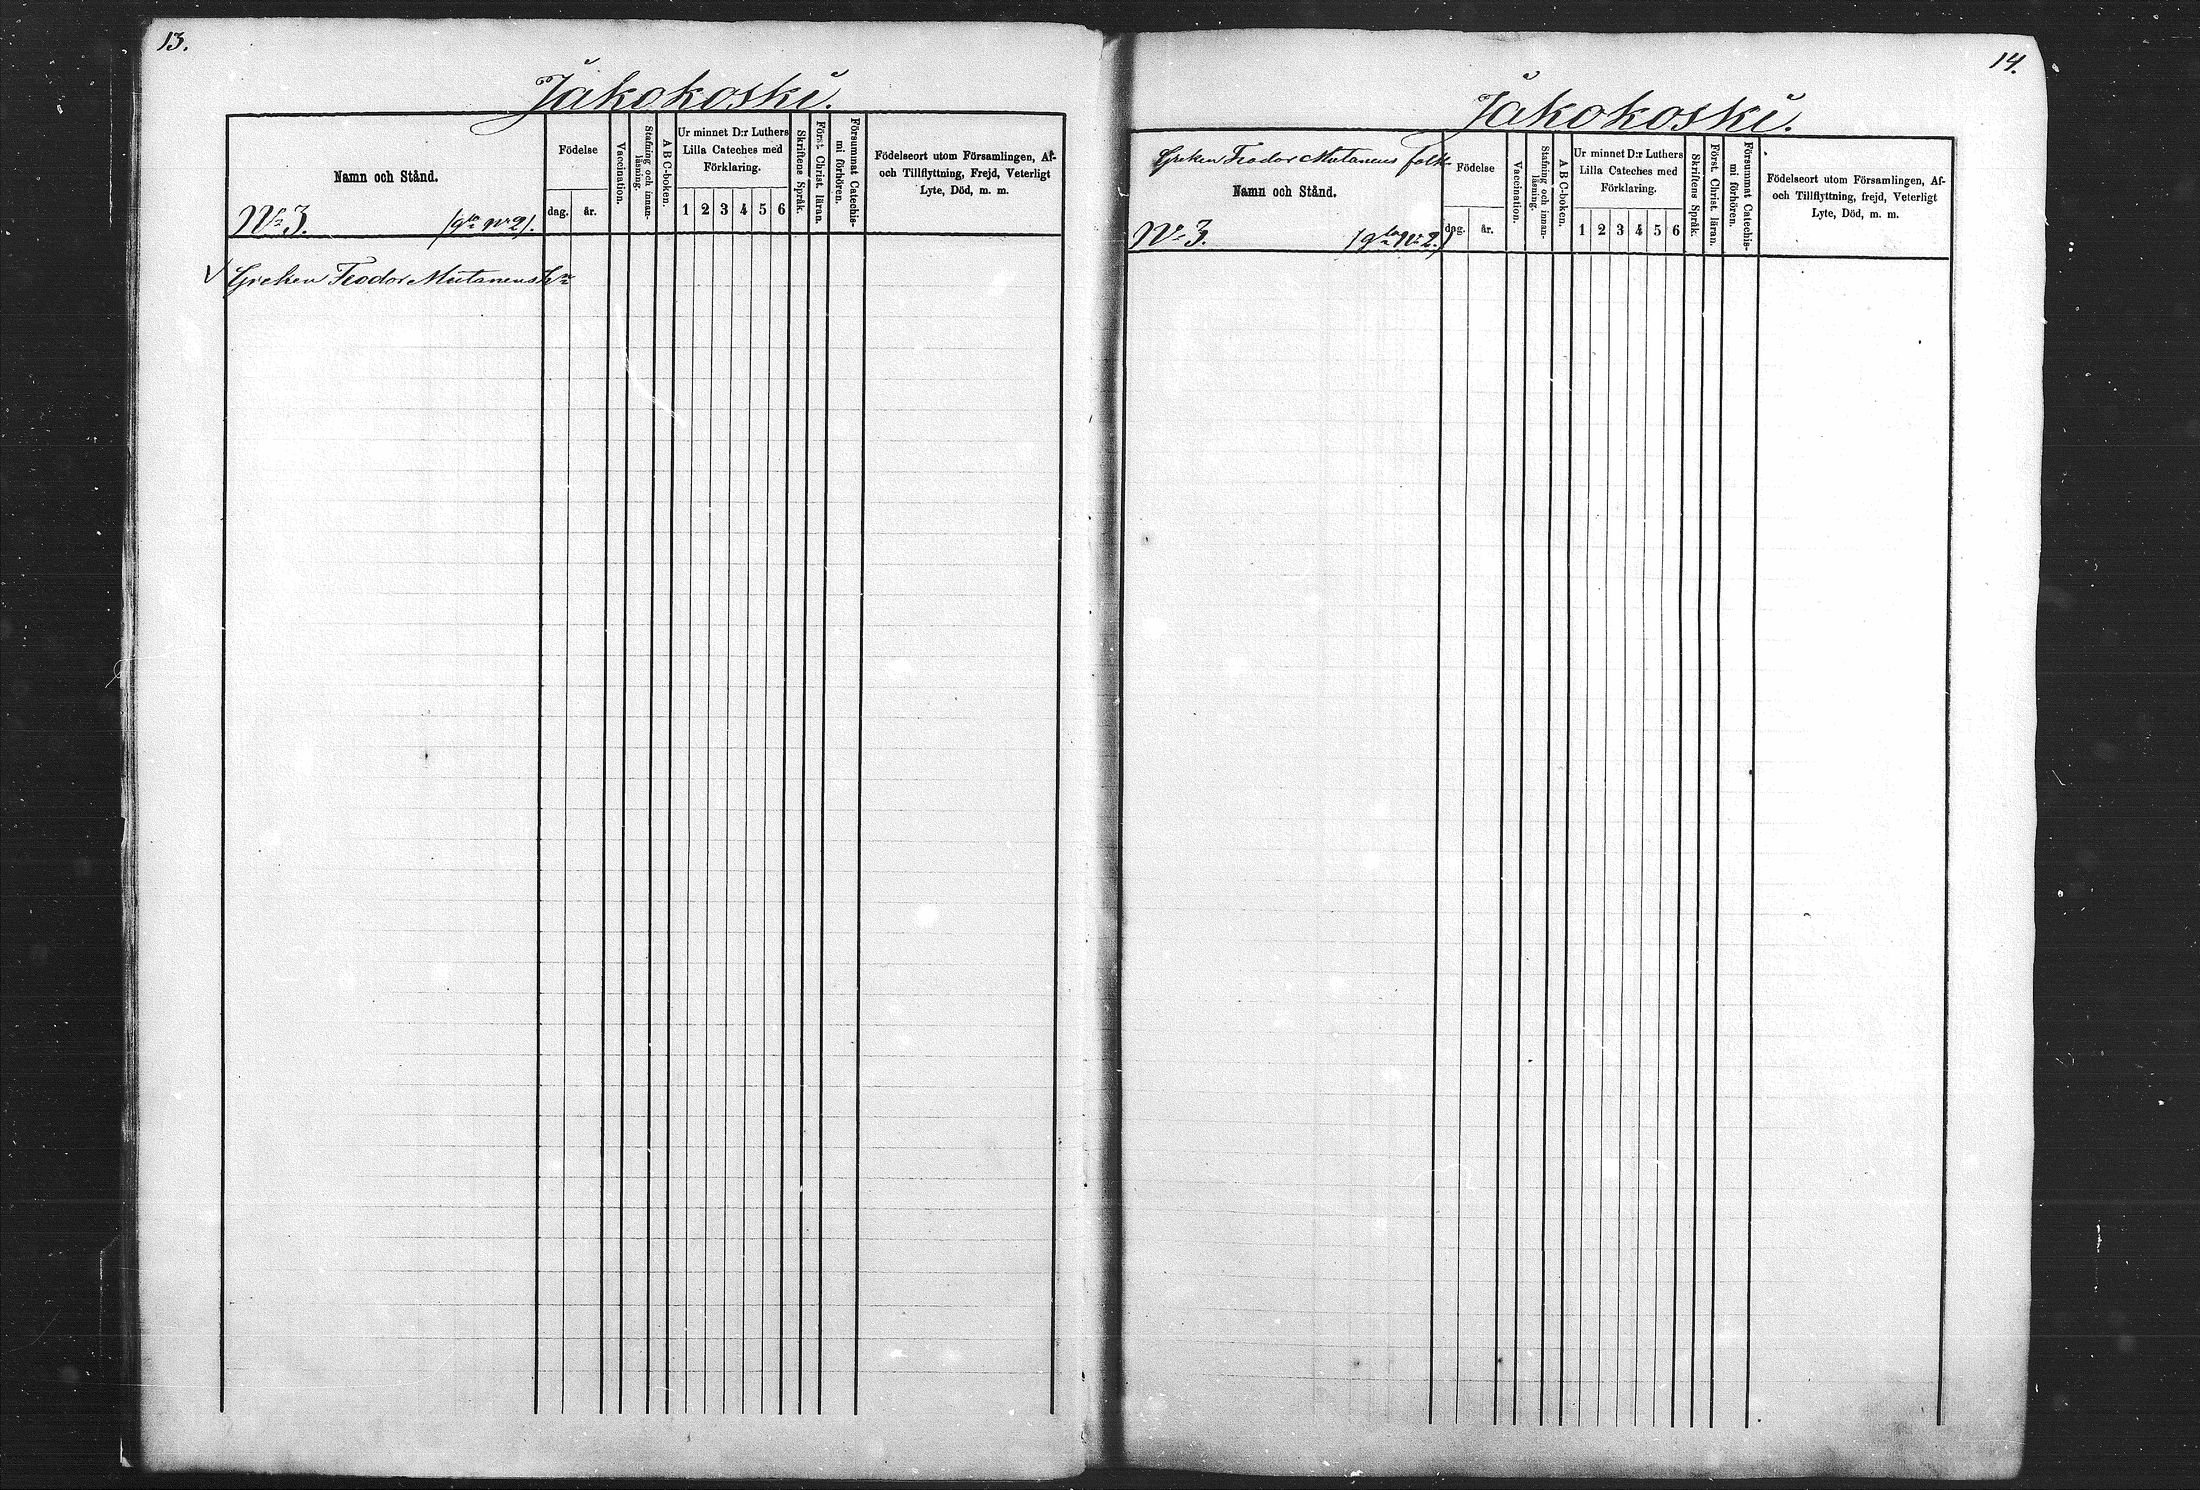 13.
Jakokoski.
Namn och Stånd.
Födelse
dag.
år.
Vaccination.
Stafning och innan-
läsning.
ABC-boken.
Ur minnet D:r Luthers
Lilla Cateches med
Förklaring.
1 2 3 4 5 6
Skriftens Språk.
Först. Christ. läran.
Försummat Catechis-
mi förhören.
Födelseort utom Församlingen, Af-
och Tillflyttning, Frejd, Veterligt
Lyte, Död, m. m.
No 3. (gla No 2).
Greken Teodor Mutanens
14.
Jakokoski.
Greken Teodor Mutanens folk
Namn och Stånd.
Födelse
dag.
år.
Vaccination.
Stafning och innan-
läsning.
ABC-boken.
Ur minnet D:r Luthers
Lilla Cateches med
Förklaring.
1 2 3 4 5 6
Skriftens Språk.
Först. Christ. läran.
Försummat Catechis-
mi förhören.
Födelseort utom Församlingen, Af-
och Tillflyttning, frejd, Veterligt
Lyte, Död, m. m.
No 3. (gla No 2.)